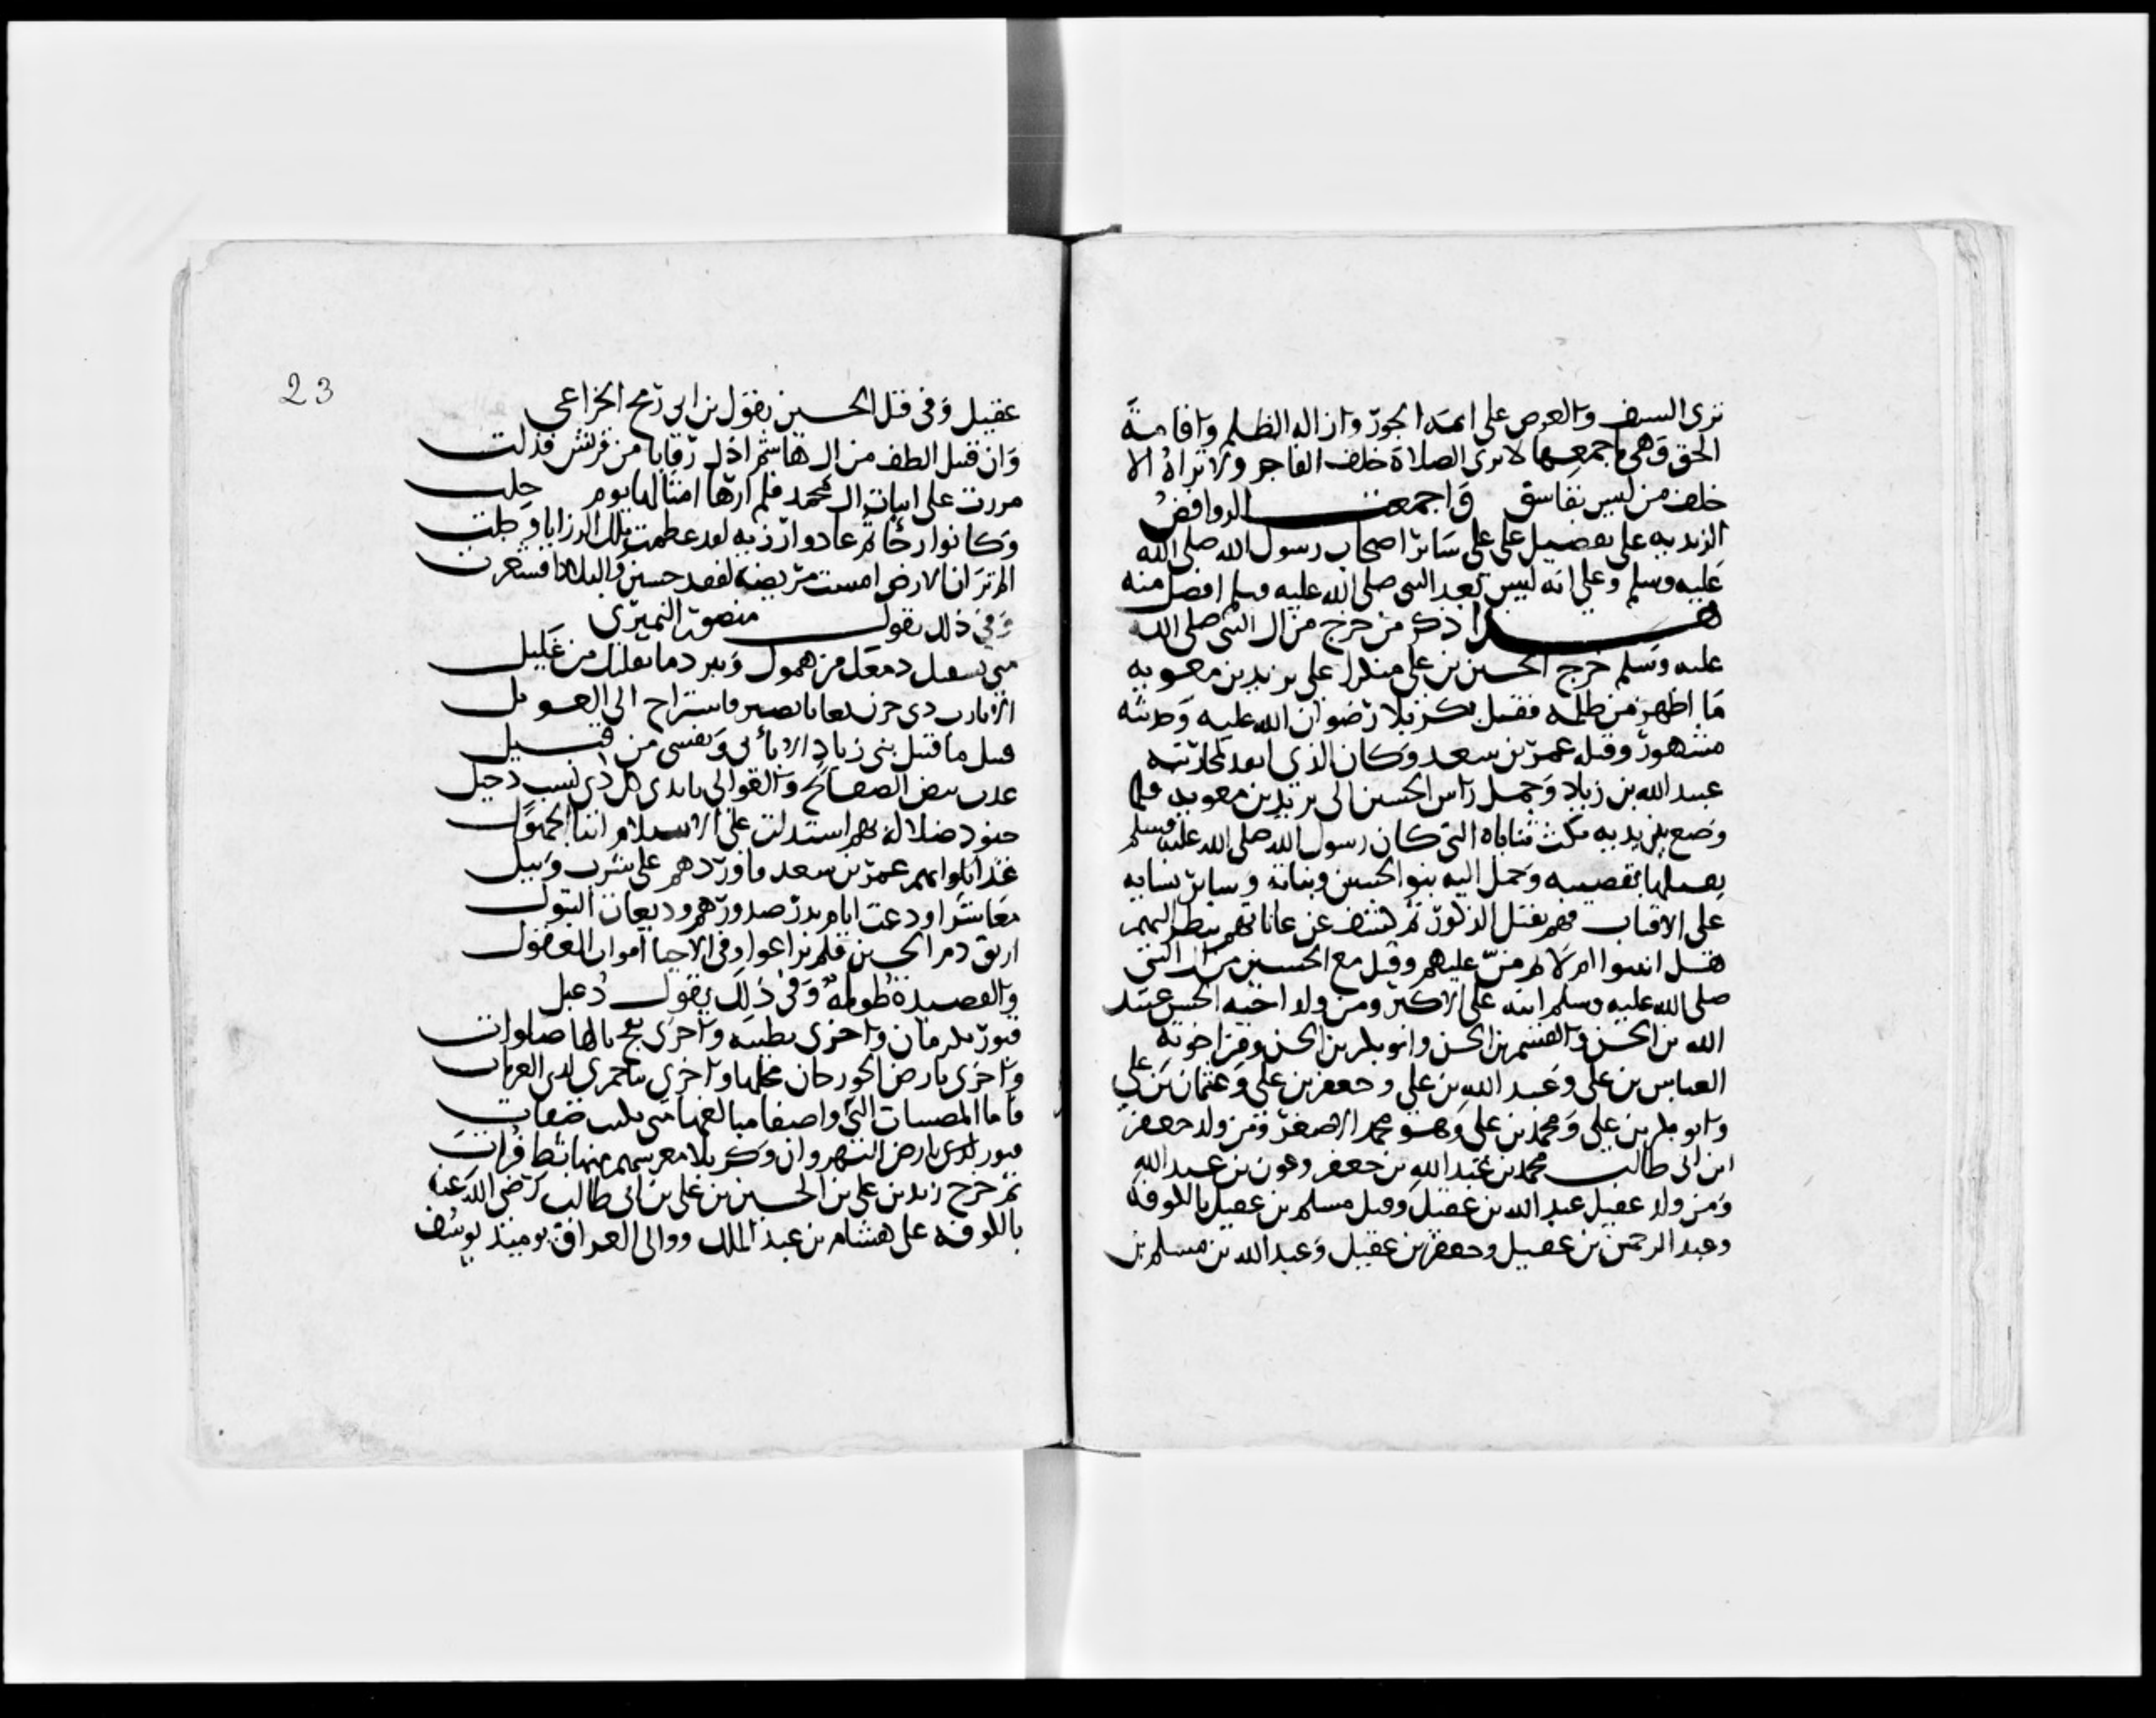 ترى السيف والعرض على ائمة الجور وازالة الظلم واقامة
الحق وهي باجمعها لا ترى الصلاة خلف الفاجر ولا تراه الا
خلف من ليس بفاسق واجمعت الروافض
الزيدية على تفضيل علي على سائر اصحاب رسول الله صلى الله
عليه وسلم وعلى انه ليس بعد النبي صلى الله عليه وسلم افضل منه
هذا ذكر من خرج من ال النبي صلى الله
عليه وسلم خرج الحسين بن علي منكرا على يزيد بن معوية
ما اظهر من ظلمه فقتل بكربلا رضوان الله عليه وحديثه
مشهور وقتله عمر بن سعد وكان الذي انفذ لمحاربته
عبيد الله بن زياد وحمل راس الحسين الى يزيد بن معوية فلما
وضع بين يديه نكث ثناياه التي كان رسول الله صلى الله عليه وسلم
يقبلها بقضيبه وحمل اليه بنو الحسين وبناته وسائر نسايه
على الاقتاب فهم بقتل الذكور ثم كشف عن عاناتهم ينظر اليهم
هل انبتوا ام لا ثم من عليهم وقتل مع الحسين من ال النبي
صلى الله عليه وسلم ابنه علي الاكبر ومن ولد اخيه الحسن عبد
الله بن الحسن والقسم بن الحسن وابو بكر بن الحسن ومن اخوته
العباس بن علي وعبد الله بن علي وجعفر بن علي وعثمان بن علي
وابو بكر بن علي ومحمد بن علي وهو محمد الاصغر ومن ولد جعفر
ابن ابي طالب محمد بن عبد الله بن جعفر وعون بن عبد الله
ومن ولد عقيل عبد الله بن عقيل وقتل مسلم بن عقيل بالكوفة
وعبد الرحمن بن عقيل وجعفر بن عقيل وعبد الله بن مسلم بن
23
عقيل وفي قتل الحسين يقول بن ابي رمح الخزاعي
وان قتيل الطف من ال هاشم اذل رقابا من قريش فذلت
مررت على ابيات ال محمد فلم ارها امثالها يوم حلت
وكانوا رجا ثم عادوا رزية لقد عظمت تلك الرزايا وجلت
الم تر ان الارض امست مريضة لفقد حسين والبلاد اقشعرت
وفي ذلك يقول منصور النميري
متى يشفيك دمعك من همول ويبرد ما بقلبك من غليل
الا يارب ذي حزن تعايا بصبر فاستراح الى العويل
قتيل ما قتيل بني زياد الا بابي ونفسي من قتيل
غدت بيض الصفائح والعوالي بايدي كل ذي نسب دخيل
جنود ضلالة بهم استدلت على الاسلام ابنا الجهول
عمر بن سعد فاوردهم على شرب وبيل
معاشر اودعت ايام بدر صدورهم وديعات التبول
اريق دم الحسين فلم يراعوا وفي الاحيا اموات العقول
والقصيدة طويلة وفي ذلك يقول دعبل
قبور بكوفان واخرى بطيبة واخرى بفخ نالها صلوات
واخرى بارض الجوزجان محلها واخرى بباخمرى لدى الغربات
فاما الممضات التي واصفا مبالغها مني بكنه صفات
قبور لدى بارض النهروان وكربلا معرسهم منها بشط فرات
ثم خرج زيد بن علي بن الحسين بن علي بن ابي طالب رضي الله عنه
بالكوفة على هشام بن عبد الملك ووالي العراق يومئذ يوسف